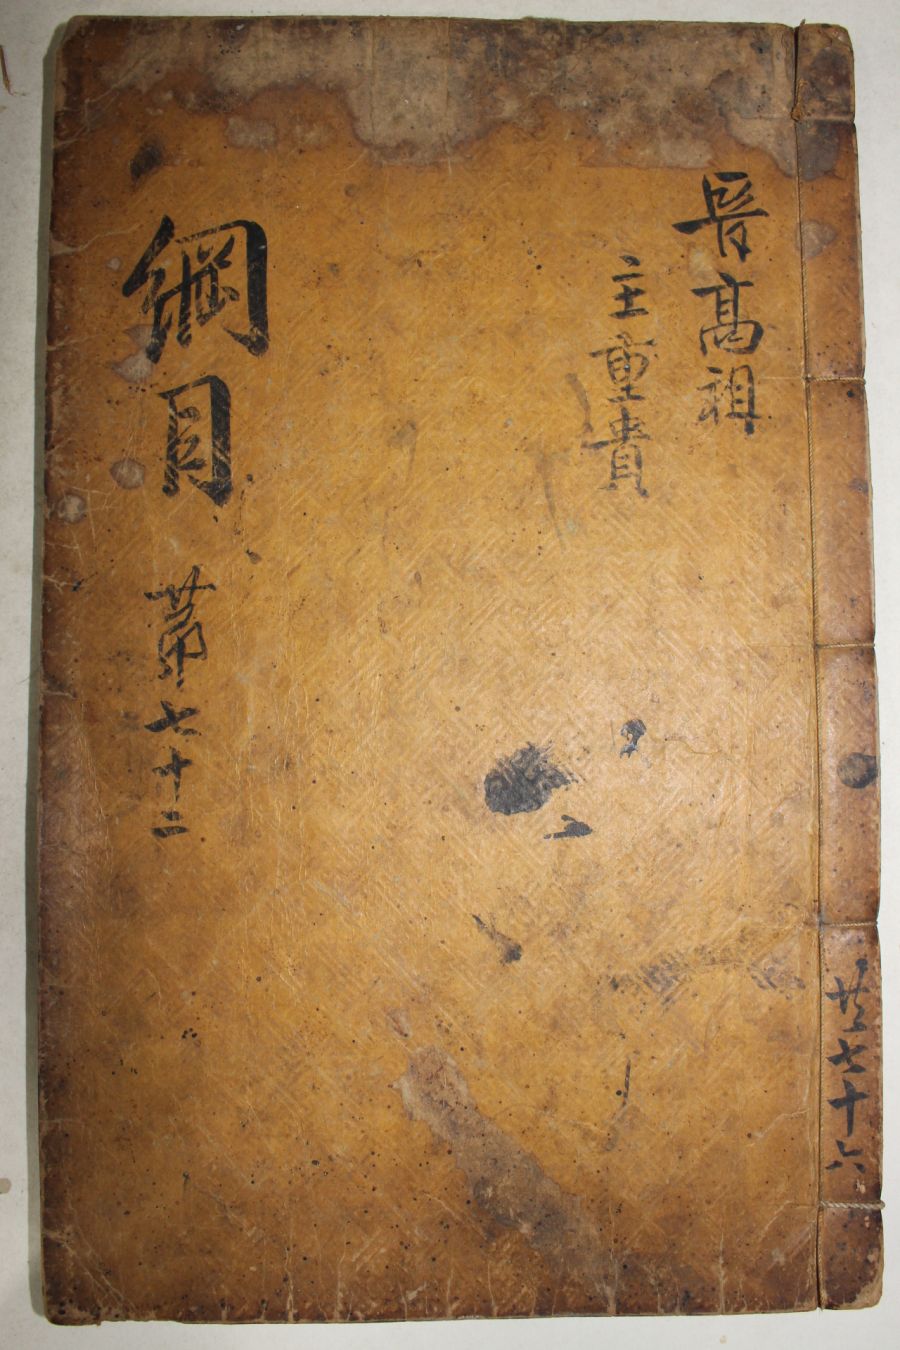 晉高祖
主重貴
綱目
第七十二
共七十六